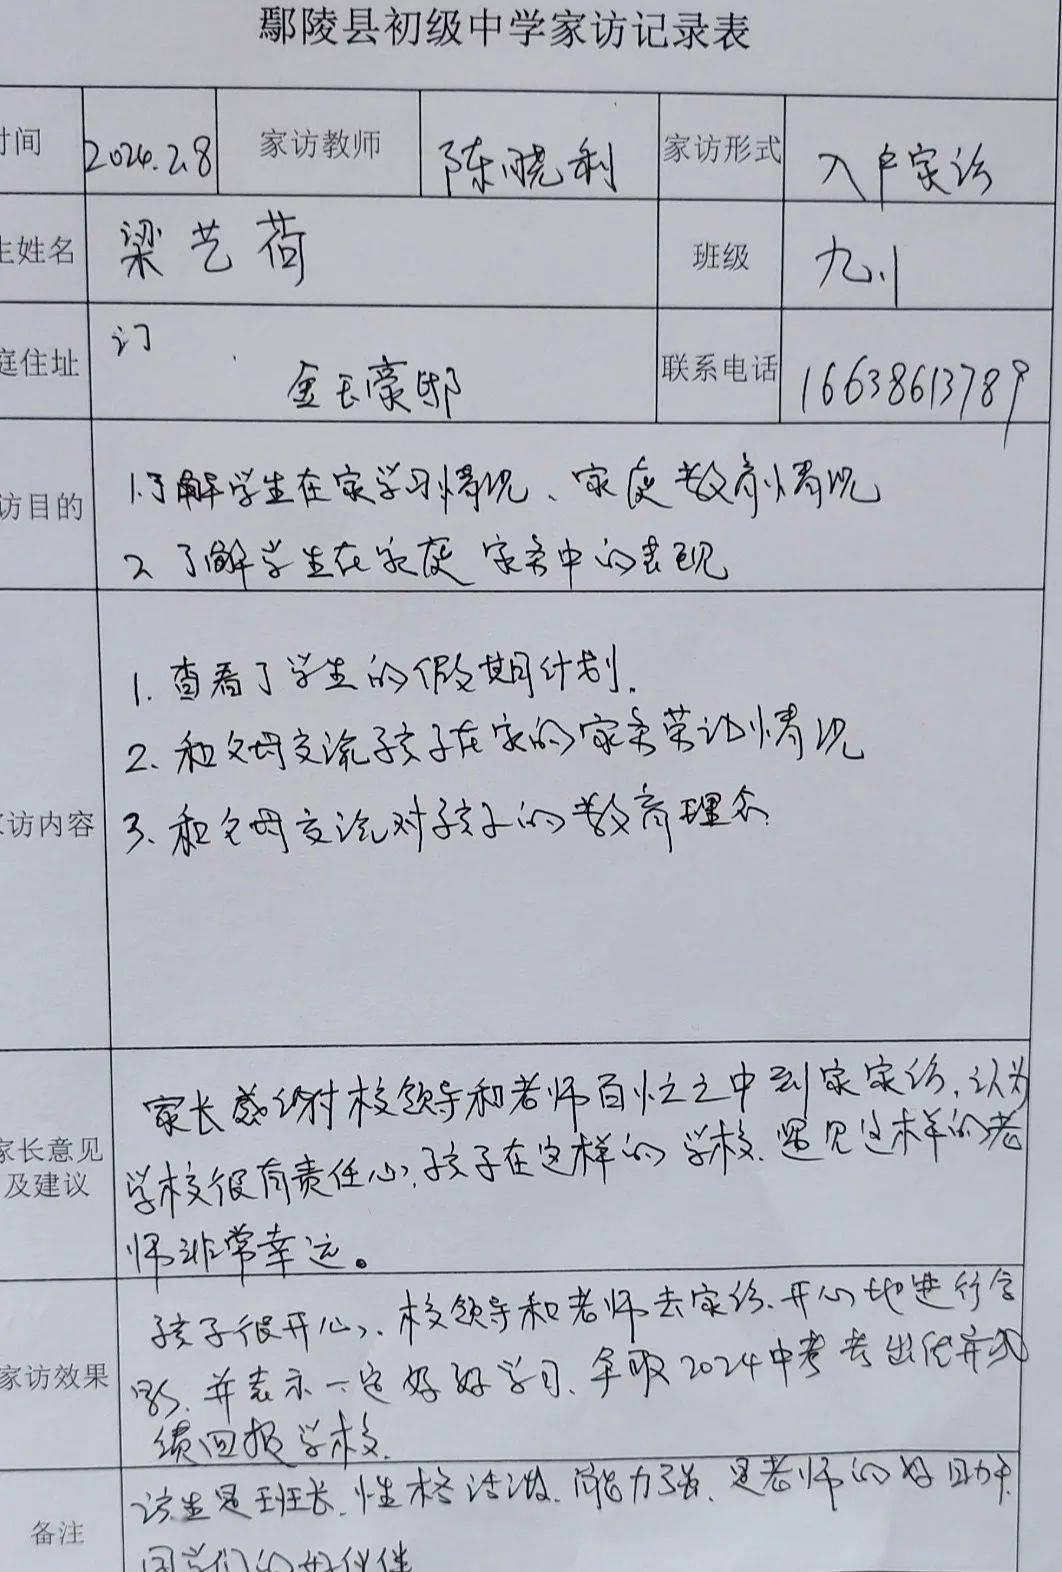 鄢陵县初级中学家访记录表
时间 2024.2.8 家访教师 陈晓利 家访形式 入户家访
生姓名 梁艺荷 班级 九.1
庭住址 订 金玉豪邸 联系电话 16638613789
访目的
1.了解学生在家学习情况、家庭教育情况
2 了解学生在家庭家务中的表现
访内容
1. 查看了学生的假期计划.
2. 和父母交流孩子在家的家务劳动情况
3. 和父母交流对孩子的教育理念.
家长意见
及建议
家长感谢校领导和老师百忙之中到家家访,认为
学校很有责任心,孩子在这样的学校、遇见这样的老
师非常幸运。
家访效果
孩子很开心、校领导和老师去家访、开心地进行合
影,并表示一定好好学习、争取2024中考考出优异成
绩回报学校.
备注
该生是班长,性格活泼、能力强、是老师的好助手,
同学们的好伙伴